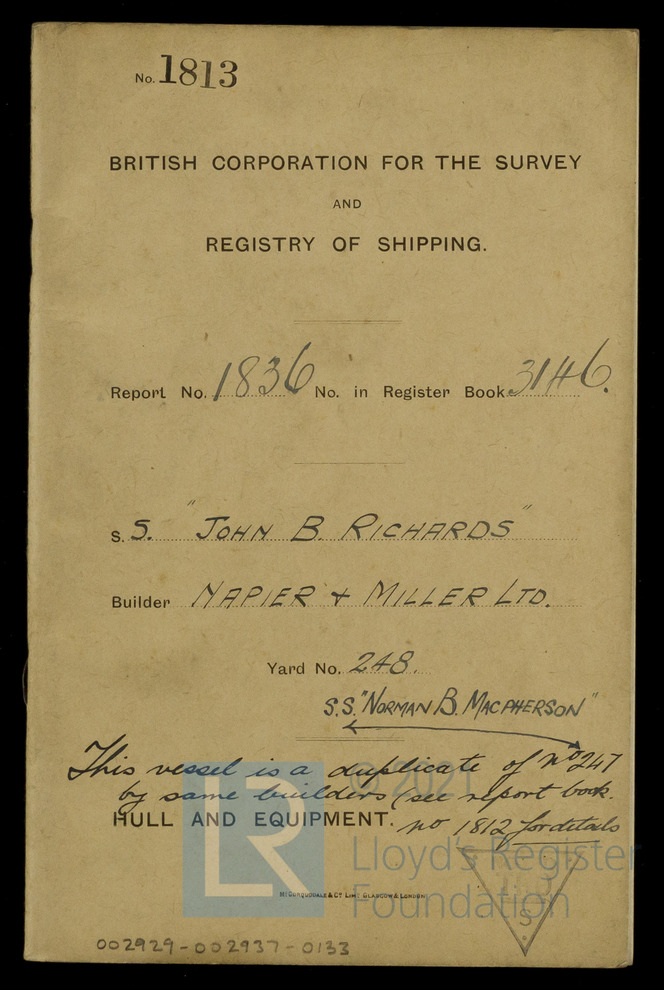 No. 1813
BRITISH CORPORATION FOR THE SURVEY
AND
REGISTRY OF SHIPPING.
Report No. 1836 No. in Register Book 3146.
S. S. "JOHN B. RICHARDS"
Builder NAPIER & MILLER LTD.
Yard No. 248.
S.S. "NORMAN B. MACPHERSON"
This vessel is a duplicate of No 247
by same builders (see report book
HULL AND EQUIPMENT. no 1812 for details
© 2021
LR
Lloyd's Register
Foundation
McCorquodale & Co. Ltd. Glasgow & London
S.
002929-002937-0133